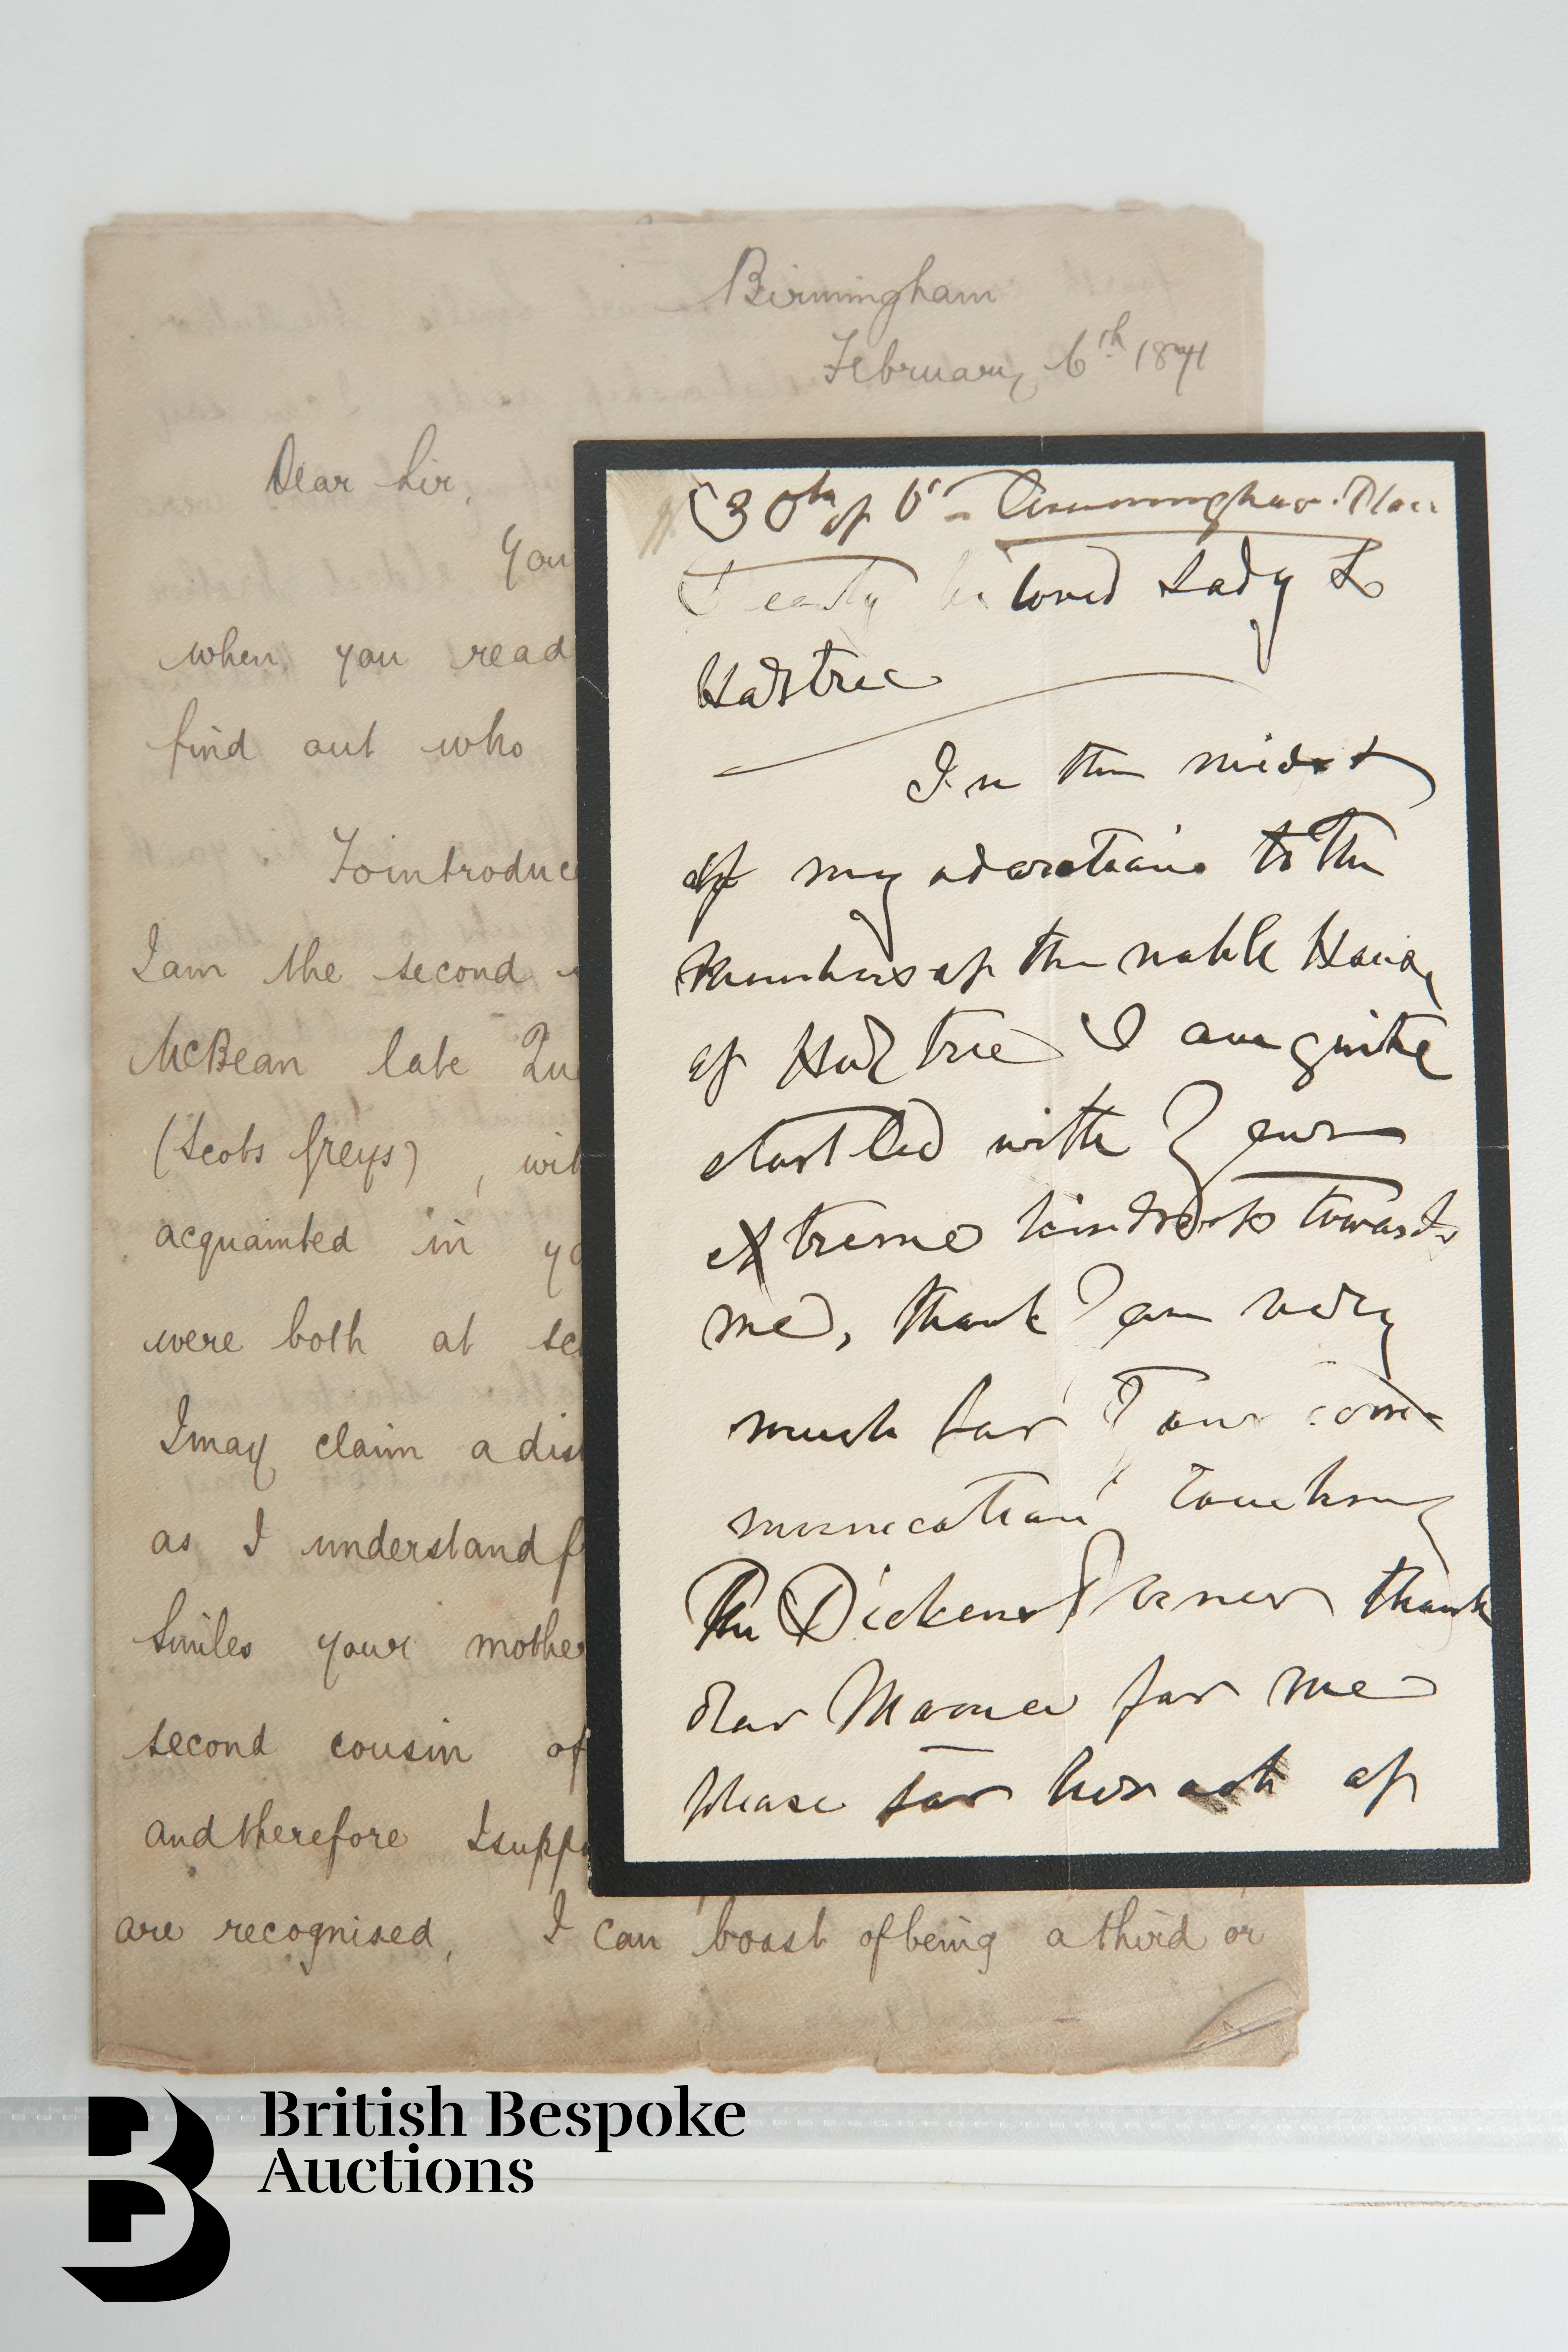 Birmingham
February 6th 1871
Dear Sir,
You
when you read
find out who
To introduce
I am the second
McBean late
(Scots Greys), wit
acquainted in yo
were both at sc
I may claim a dis
as I understand f
Smiles your mother
second cousin of
and therefore I suppo
are recognised, I can boast of being a third or
30th of
Dearly beloved Lady L
In the midst
of my adorations to the
Members of the noble House
of I am quite
startled with Your
extreme kindness towards
me, thank You very
much for Your com-
munication touching
the Dickens thank
dear Mamma for me
please for her act of
British Bespoke
Auctions